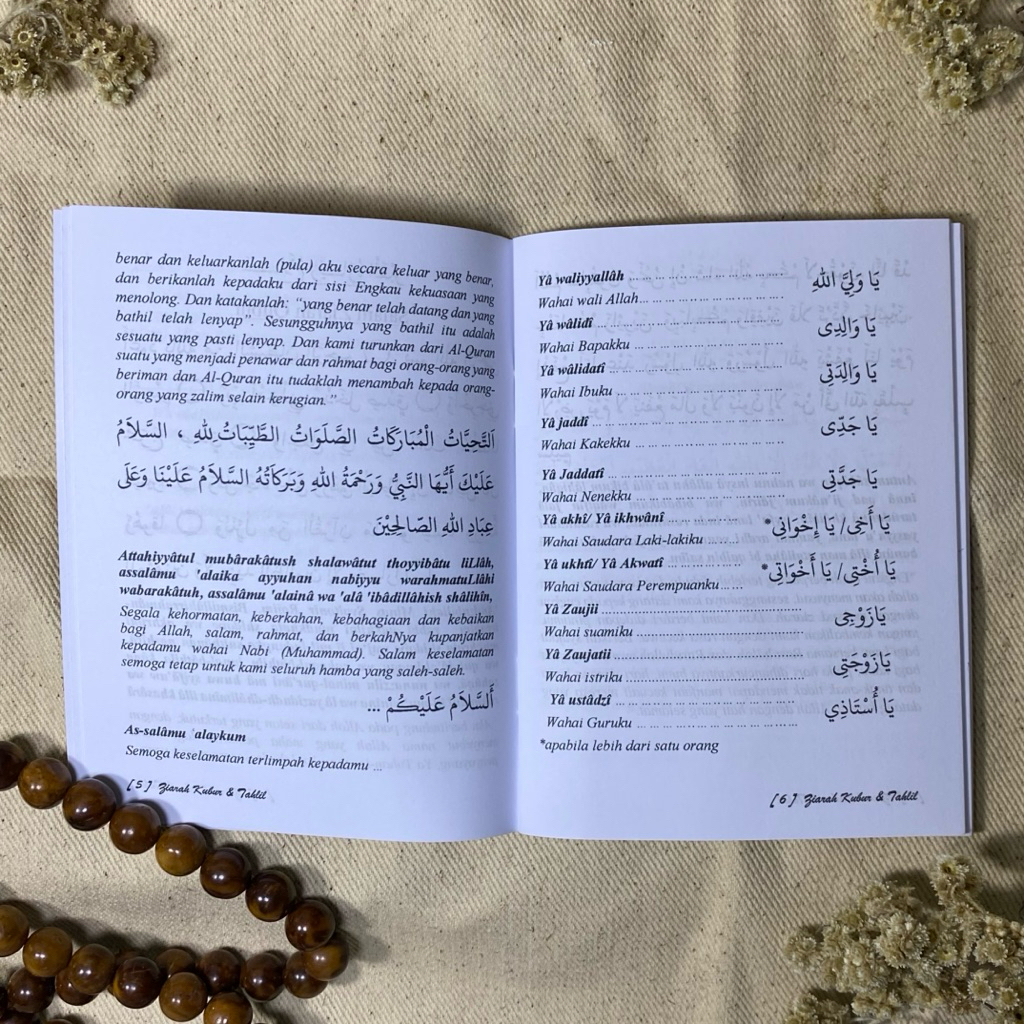 benar dan keluarkanlah (pula) aku secara keluar yang benar,
dan berikanlah kepadaku dari sisi Engkau kekuasaan yang
menolong. Dan katakanlah: "yang benar telah datang dan yang
bathil telah lenyap". Sesungguhnya yang bathil itu adalah
sesuatu yang pasti lenyap. Dan kami turunkan dari Al-Quran
suatu yang menjadi penawar dan rahmat bagi orang-orang yang
beriman dan Al-Quran itu tudaklah menambah kepada orang-
orang yang zalim selain kerugian."
اَلتَّحِيَّاتُ الْمُبَارَكَاتُ الصَّلَوَاتُ الطَّيِّبَاتُ لِلهِ ، السَّلاَمُ
عَلَيْكَ أَيُّهَا النَّبِيُّ وَرَحْمَةُ اللهِ وَبَرَكَاتُهُ السَّلاَمُ عَلَيْنَا وَعَلَى
عِبَادِ اللهِ الصَّالِحِيْنَ
Attahiyyâtul mubârakâtush shalawâtut thoyyibâtu liLlâh,
assalâmu 'alaika ayyuhan nabiyyu warahmatuLlâhi
wabarakâtuh, assalâmu 'alainâ wa 'alâ 'ibâdillâhish shâlihîn,
Segala kehormatan, keberkahan, kebahagiaan dan kebaikan
bagi Allah, salam, rahmat, dan berkahNya kupanjatkan
kepadamu wahai Nabi (Muhammad). Salam keselamatan
semoga tetap untuk kami seluruh hamba yang saleh-saleh.
أَلسَّلاَمُ عَلَيْكُمْ ...
As-salâmu 'alaykum
Semoga keselamatan terlimpah kepadamu ...
[ 5 ] Ziarah Kubur & Tahlil
Yâ waliyyallâh ........................ يَا وَلِيَّ اللهِ
Wahai wali Allah........................
Yâ wâlidî ........................ يَا وَالِدِى
Wahai Bapakku ........................
Yâ wâlidatî ........................ يَا وَالِدَتِى
Wahai Ibuku ........................
Yâ jaddî ........................ يَا جَدِّى
Wahai Kakekku ........................
Yâ Jaddatî ........................ يَا جَدَّتِى
Wahai Nenekku ........................
Yâ akhî/ Yâ ikhwânî ........ يَا أَخِى/ يَا إِخْوَانِى*
Wahai Saudara Laki-lakiku ........
Yâ ukhtî/ Yâ Akwatî ........ يَا أُخْتِى/ يَا أَخْوَاتِى*
Wahai Saudara Perempuanku ......
Yâ Zaujii ........................ يَازَوْجِى
Wahai suamiku ........................
Yâ Zaujatii ........................ يَازَوْجَتِى
Wahai istriku ........................
Yâ ustâdzî ........................ يَا أُسْتَاذِي
Wahai Guruku ........................
*apabila lebih dari satu orang
[ 6 ] Ziarah Kubur & Tahlil